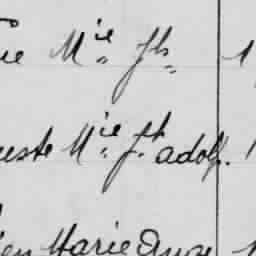 ue Mie Jh 1
uste Mie Jh adolf. 1
en Marie Ange 1